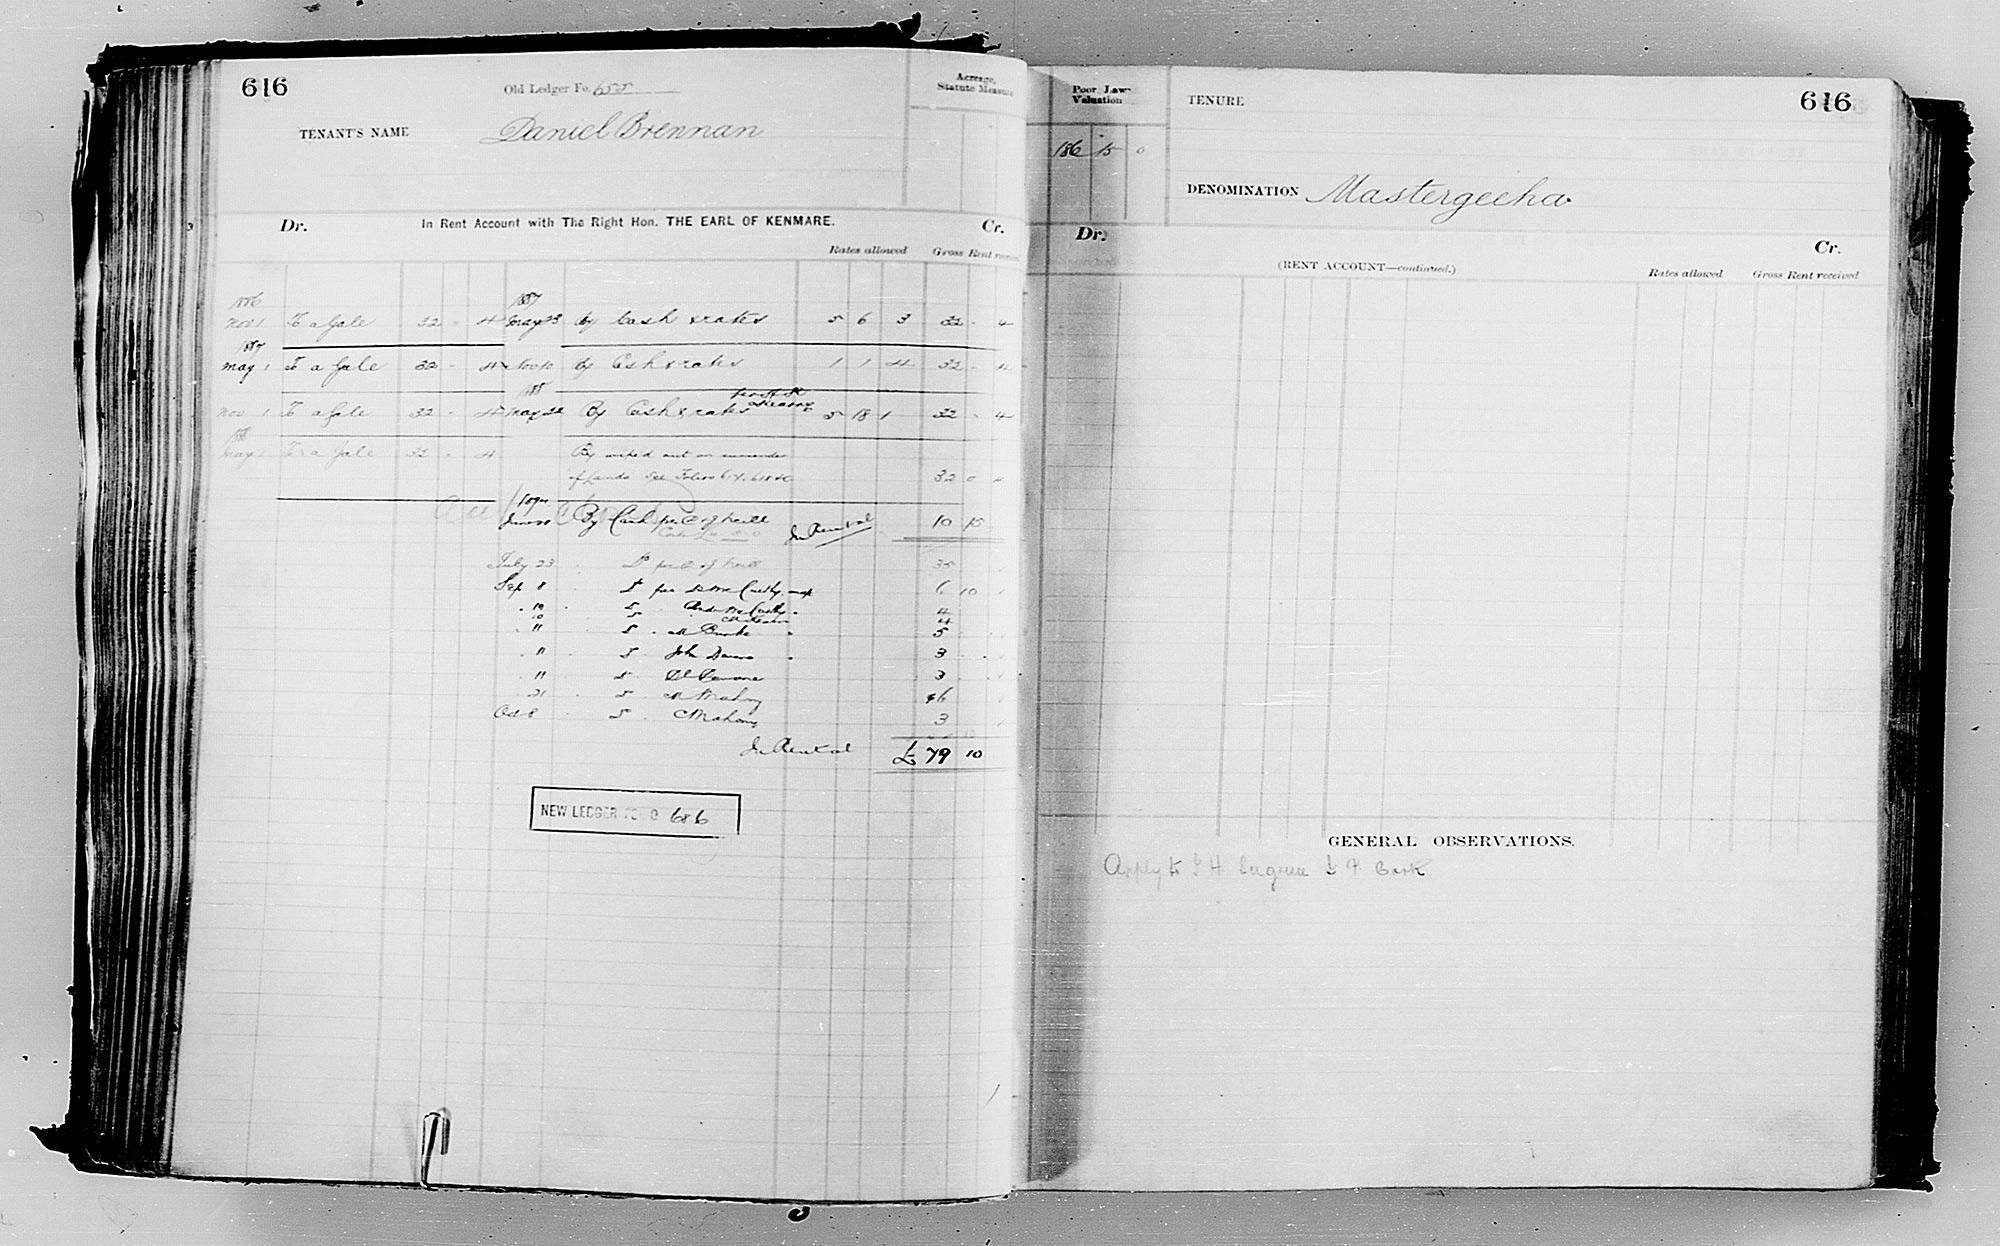 616
Old Ledger Fo. 655
Acreage, Statute Measure
TENANT'S NAME Daniel Brennan
In Rent Account with The Right Hon. THE EARL OF KENMARE.
Dr. Cr.
Rates allowed Gross Rent received
1886 1887
Nov 1 To a Gale 32 - 4 May 23 By Cash & rates 5 6 3 32 - 4
1887
May 1 To a Gale 32 - 4 Nov 10 By Cash & rates 1 1 4 32 - 4
1888
Nov 1 To a Gale 32 - 4 May 22 By Cash & rates 5 18 1 32 - 4
1888
May 1 To a Gale 32 - 4 By wiped out on surrender
of lands See Folios 32 0 4
June By Cash per In Rental 10 15
July 23 Do per 35
Sep 8 Do per McCarthy 6 10
" 10 Do McCarthy 4
10 Do 4
" 11 Do M Burke 5
" 11 Do John 3
" 11 Do 3
21 Do M Mahony 6
Oct 8 Do C Mahony 3
In Rental £ 79 10
NEW LEDGER FOLIO 686
Poor Law Valuation
TENURE
616
186 15 0
DENOMINATION Mastergeeha
Dr. Cr.
(RENT ACCOUNT—continued.)
Rates allowed Gross Rent received
GENERAL OBSERVATIONS.
Apply to